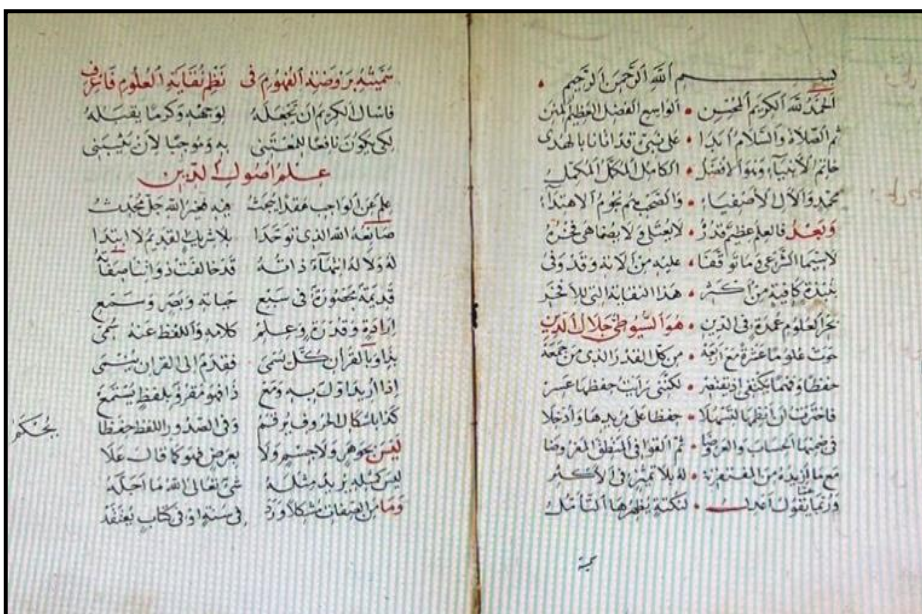 بسم الله الرحمن الرحيم
الحمد لله الكريم المحسن • الواسع الفضل العظيم المنن
ثم الصلاة والسلام أبدا • على نبي قد أتانا بالهدى
خاتم الأنبياء وهو الأفضل • الكامل المكمل المكمل
محمد والآل الأصفياء • والصحب هم نجوم الاهتداء
وبعد فالعلم عظيم قدره • لا يعتلي ولا يضاهى فخره
لاسيما الشرعي وما توقفا • عليه من آلاته وقد وفى
بنبذة كافية من أكثر • هذا النقاية التي للأخير
بحر العلوم عمدة في الدين • هو السيوطي جلال الدين
حوت علوما عشرة مع أربعة • من كل القدر الذي من جمعه
حفظا وفهما يكتفي إذ يقتصر • لكنني رأيت حفظها عسر
فاخترت أن أنظمها لتسهلا • حفظا على مريدها وأدخلا
في ضمنها الحساب والعروضا • ثم القوافي المنطق المعروضا
مع ما أزيده من المفتقر • له بلا تميز في الأكثر
وربما يقول أعدل • لنكتة يظهرها التأمل
سميته بروضة الفهوم في نظم نقاية العلوم فاعرف
فاسأل الكريم أن يجعله لوجهه وكرما يقبله
لكي يكون نافعا للمعتني به وموجبا لأن يثيبني
علم أصول الدين
علم عن الواجب عقدا يبحث فيه فغير الله جل محدث
صانعه الله الذي توحدا بلا شريك لقديم لا ابتدا
له ولا له انتهاء ذاته قد خالفت ذواتنا صفاته
قديمة محصورة في سبع حياته وبصر وسمع
إرادة وقدرة وعلم كلامه واللفظ عنه سمي
بذا وبالقرآن كل يسمى فقدم إلى القرآن ينتمى
إذا أريد أول به ومع ذا فهو مقروء بلفظ يستمع
كذا بأشكال الحروف يرقم وفي الصدور اللفظ حفظا
يحكم
ليس بجوهر ولا جسم ولا بعرض فهو كما قال علا
ليس كمثله يريد مثله شيء تعالى الله ما أجله
وما من الصفات مشكلا ورد في سنة أو في كتاب يعتقد